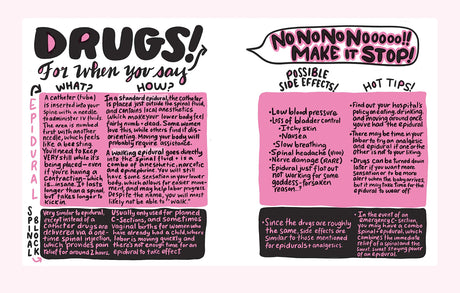 DRUGS!
For when you say
NONONONOOOOO!!
MAKE IT STOP!
WHAT?
HOW?
POSSIBLE
SIDE EFFECTS!
HOT TIPS!
EPIDURAL
A catheter (tube)
is inserted into
your spine with
a needle
to administer
the drugs.
The area is numbed
first with another
needle, which feels
like a bee sting.
You'll need to KEEP
VERY still while it's
being placed—even
if you're having a
contraction—which
is...insane. It lasts
longer than a spinal
but takes longer to
kick in.
In a standard epidural, the catheter
is placed just outside the spinal fluid,
and contains local anesthetics
which make your lower body feel
fairly numb + dead. Some women
love this, while others find it
disconcerting. Moving your body will
probably require assistance.
A walking epidural goes directly
into the spinal fluid + is a
combo of anesthetic, narcotic
and epinephrine. You will still
have some sensation in your lower
body, which allows for easier movement,
and may help labor progress.
Despite the name, you will most
likely not be able to "walk."
• Low blood pressure
• Loss of bladder control
• Itchy skin
• Nausea
• Slow breathing
• Spinal headache (RARE)
• Nerve damage (RARE)
• Epidural just flat out
not working for some
goddess-forsaken
reason
• Find out your hospital's
policy on eating, drinking,
and moving around once
you've had the epidural.
• There may be time in your
labor to try an analgesic
and epidural if one or the
other is not to your liking.
• Drugs can be turned down
later if you want more
sensation or to be more
alert when the baby arrives,
but it may take time for the
epidural to wear off
SPINAL
BLOCK
Very similar to epidural,
except instead of a
catheter drugs are
delivered via a one-
time spinal injection,
which provides pain
relief for around 2 hours.
Usually only used for planned
C-sections, and sometimes
vaginal births for women who
have already had a child, where
labor is moving quickly and
there's not enough time for an
epidural to take effect
• Since the drugs are roughly
the same, side effects are
similar to those mentioned
for epidurals + analgesics.
• In the event of an
emergency C-section,
you may have a combo
spinal + epidural, which
combines the immediate
relief of a spinal and the
sweet, sweet staying power
of an epidural.